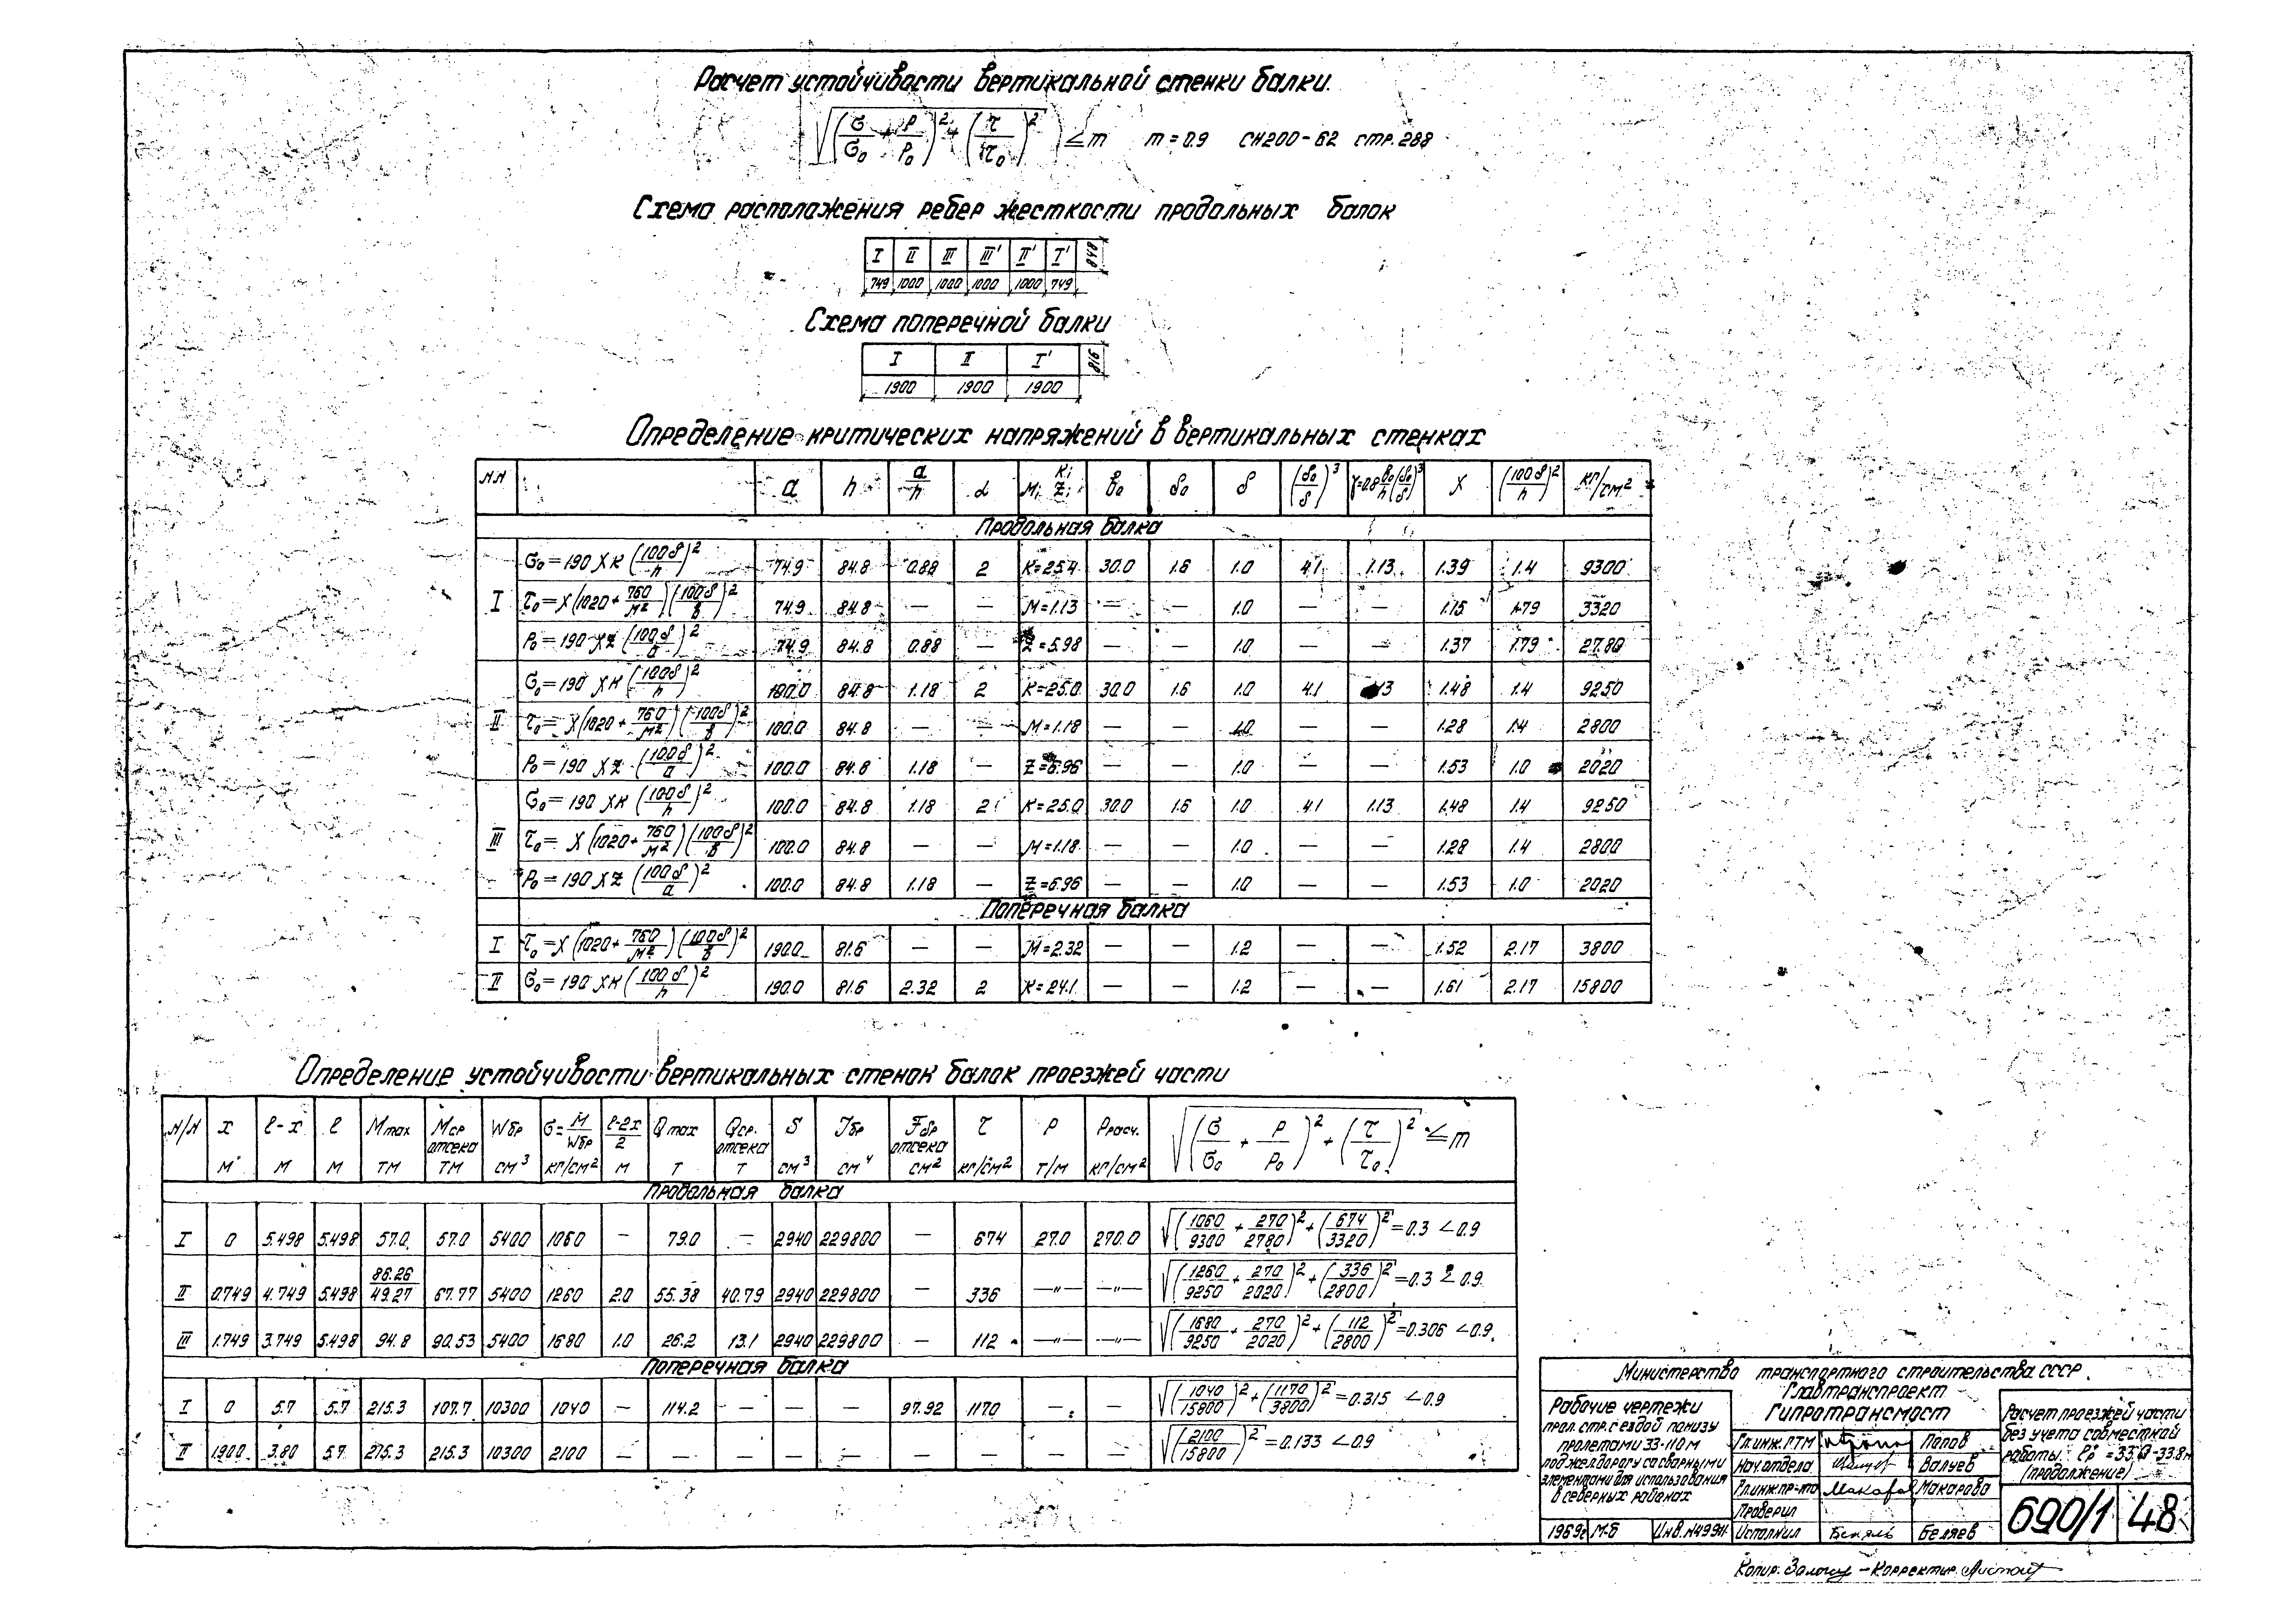 Расчет устойчивости вертикальной стенки балки.
√((σ/σ₀ + p/p₀)² + (τ/τ₀)²) ≤ m m = 0.9 СН200-62 стр. 288
Схема расположения ребер жесткости продольных балок
I II III III' II' I' 848
749 1000 1000 1000 1000 749
Схема поперечной балки
I II I' 816
1900 1900 1900
Определение критических напряжений в вертикальных стенках
NN a h a/h α M; K; Z; b₀ δ₀ δ (δ₀/δ)³ γ=0.8 b₀/h (δ₀/δ)³ X (100δ/h)² кг/см²
Продольная балка
I
σ₀ = 190 X K (100δ/h)² 74.9 84.8 0.88 2 K=25.4 30.0 1.6 1.0 4.1 1.13 1.39 1.4 9300
τ₀ = X (1020 + 760/M²)(100δ/b)² 74.9 84.8 — — M=1.13 — — 1.0 — — 1.15 1.79 3320
P₀ = 190 X Z (100δ/a)² 74.9 84.8 0.88 — Z=5.98 — — 1.0 — — 1.37 1.79 2780
II
σ₀ = 190 X K (100δ/h)² 100.0 84.8 1.18 2 K=25.0 30.0 1.6 1.0 4.1 1.48 1.4 9250
τ₀ = X (1020 + 760/M²)(100δ/b)² 100.0 84.8 — — M=1.18 — — 1.0 — — 1.28 1.4 2800
P₀ = 190 X Z (100δ/a)² 100.0 84.8 1.18 — Z=6.96 — — 1.0 — — 1.53 1.0 2020
III
σ₀ = 190 X K (100δ/h)² 100.0 84.8 1.18 2 K=25.0 30.0 1.6 1.0 4.1 1.13 1.48 1.4 9250
τ₀ = X (1020 + 760/M²)(100δ/b)² 100.0 84.8 — — M=1.18 — — 1.0 — — 1.28 1.4 2800
P₀ = 190 X Z (100δ/a)² 100.0 84.8 1.18 — Z=6.96 — — 1.0 — — 1.53 1.0 2020
Поперечная балка
I τ₀ = X (1020 + 760/M²)(100δ/b)² 190.0 81.6 — — M=2.32 — — 1.2 — — 1.52 2.17 3800
II σ₀ = 190 X K (100δ/h)² 190.0 81.6 2.32 2 K=24.1 — — 1.2 — — 1.61 2.17 15800
Определение устойчивости вертикальных стенок балок проезжей части
N/N x м ℓ-x м ℓ м Mmax тм Mср отсека тм Wбр см³ σ=M/Wбр кг/см² ℓ-2x/2 м Qmax т Qср. отсека т S см³ Jбр см⁴ Fбр отсека см² τ кг/см² P т/м Pрасч. кг/см² √((σ/σ₀ + p/p₀)² + (τ/τ₀)²) ≤ m
Продольная балка
I 0 5.498 5.498 57.0 57.0 5400 1060 — 79.0 — 2940 229800 — 674 27.0 270.0 √((1060/9300 + 270/2780)² + (674/3320)²) = 0.3 < 0.9
II 0.749 4.749 5.498 86.26/49.27 67.77 5400 1260 2.0 55.38 40.79 2940 229800 — 336 —"— —"— √((1260/9250 + 270/2020)² + (336/2800)²) = 0.3 < 0.9
III 1.749 3.749 5.498 94.8 90.53 5400 1680 1.0 26.2 13.1 2940 229800 — 112 —"— —"— √((1680/9250 + 270/2020)² + (112/2800)²) = 0.306 < 0.9
Поперечная балка
I 0 5.7 5.7 215.3 107.7 10300 1040 — 114.2 — — — 97.92 1170 — — √((1040/15800)² + (1170/3800)²) = 0.315 < 0.9
II 1.900 3.80 5.7 215.3 215.3 10300 2100 — — — — — — — — — √(2100/15800)² = 0.133 < 0.9
Министерство транспортного строительства СССР
Главтранспроект
Гипротрансмост
Рабочие чертежи
прол. стр. с ездой понизу
пролетами 33-110 м
под жел. дорогу со сварными
элементами для использования
в северных районах
1969г М-б Инв. N
Гл. инж. ГТМ Попов
Нач. отдела Валуев
Гл. инж. пр-та Макарова
Проверил
Исполнил Беляев
Расчет проезжей части
без учета совместной
работы ℓр = 33.0-33.8м
(продолжение)
690/1 48
Копир. – Корректир.